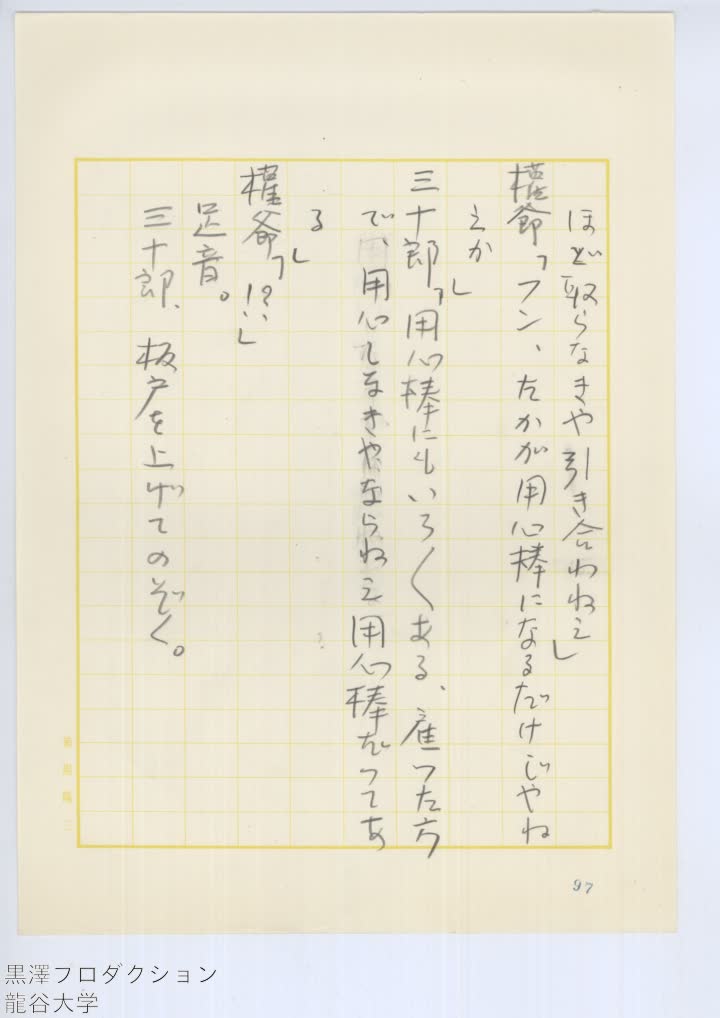 ほど取らなきや引き合わねえ」
権爺「フン、たかが用心棒になるだけじやね
えか」
三十郎「用心棒にもいろ〱ある、雇つた方
で、用心しなきやならねえ用心棒だつてあ
る」
権爺「!?…」
足音。
三十郎、板戸を上げてのぞく。
97
黒澤プロダクション
龍谷大学